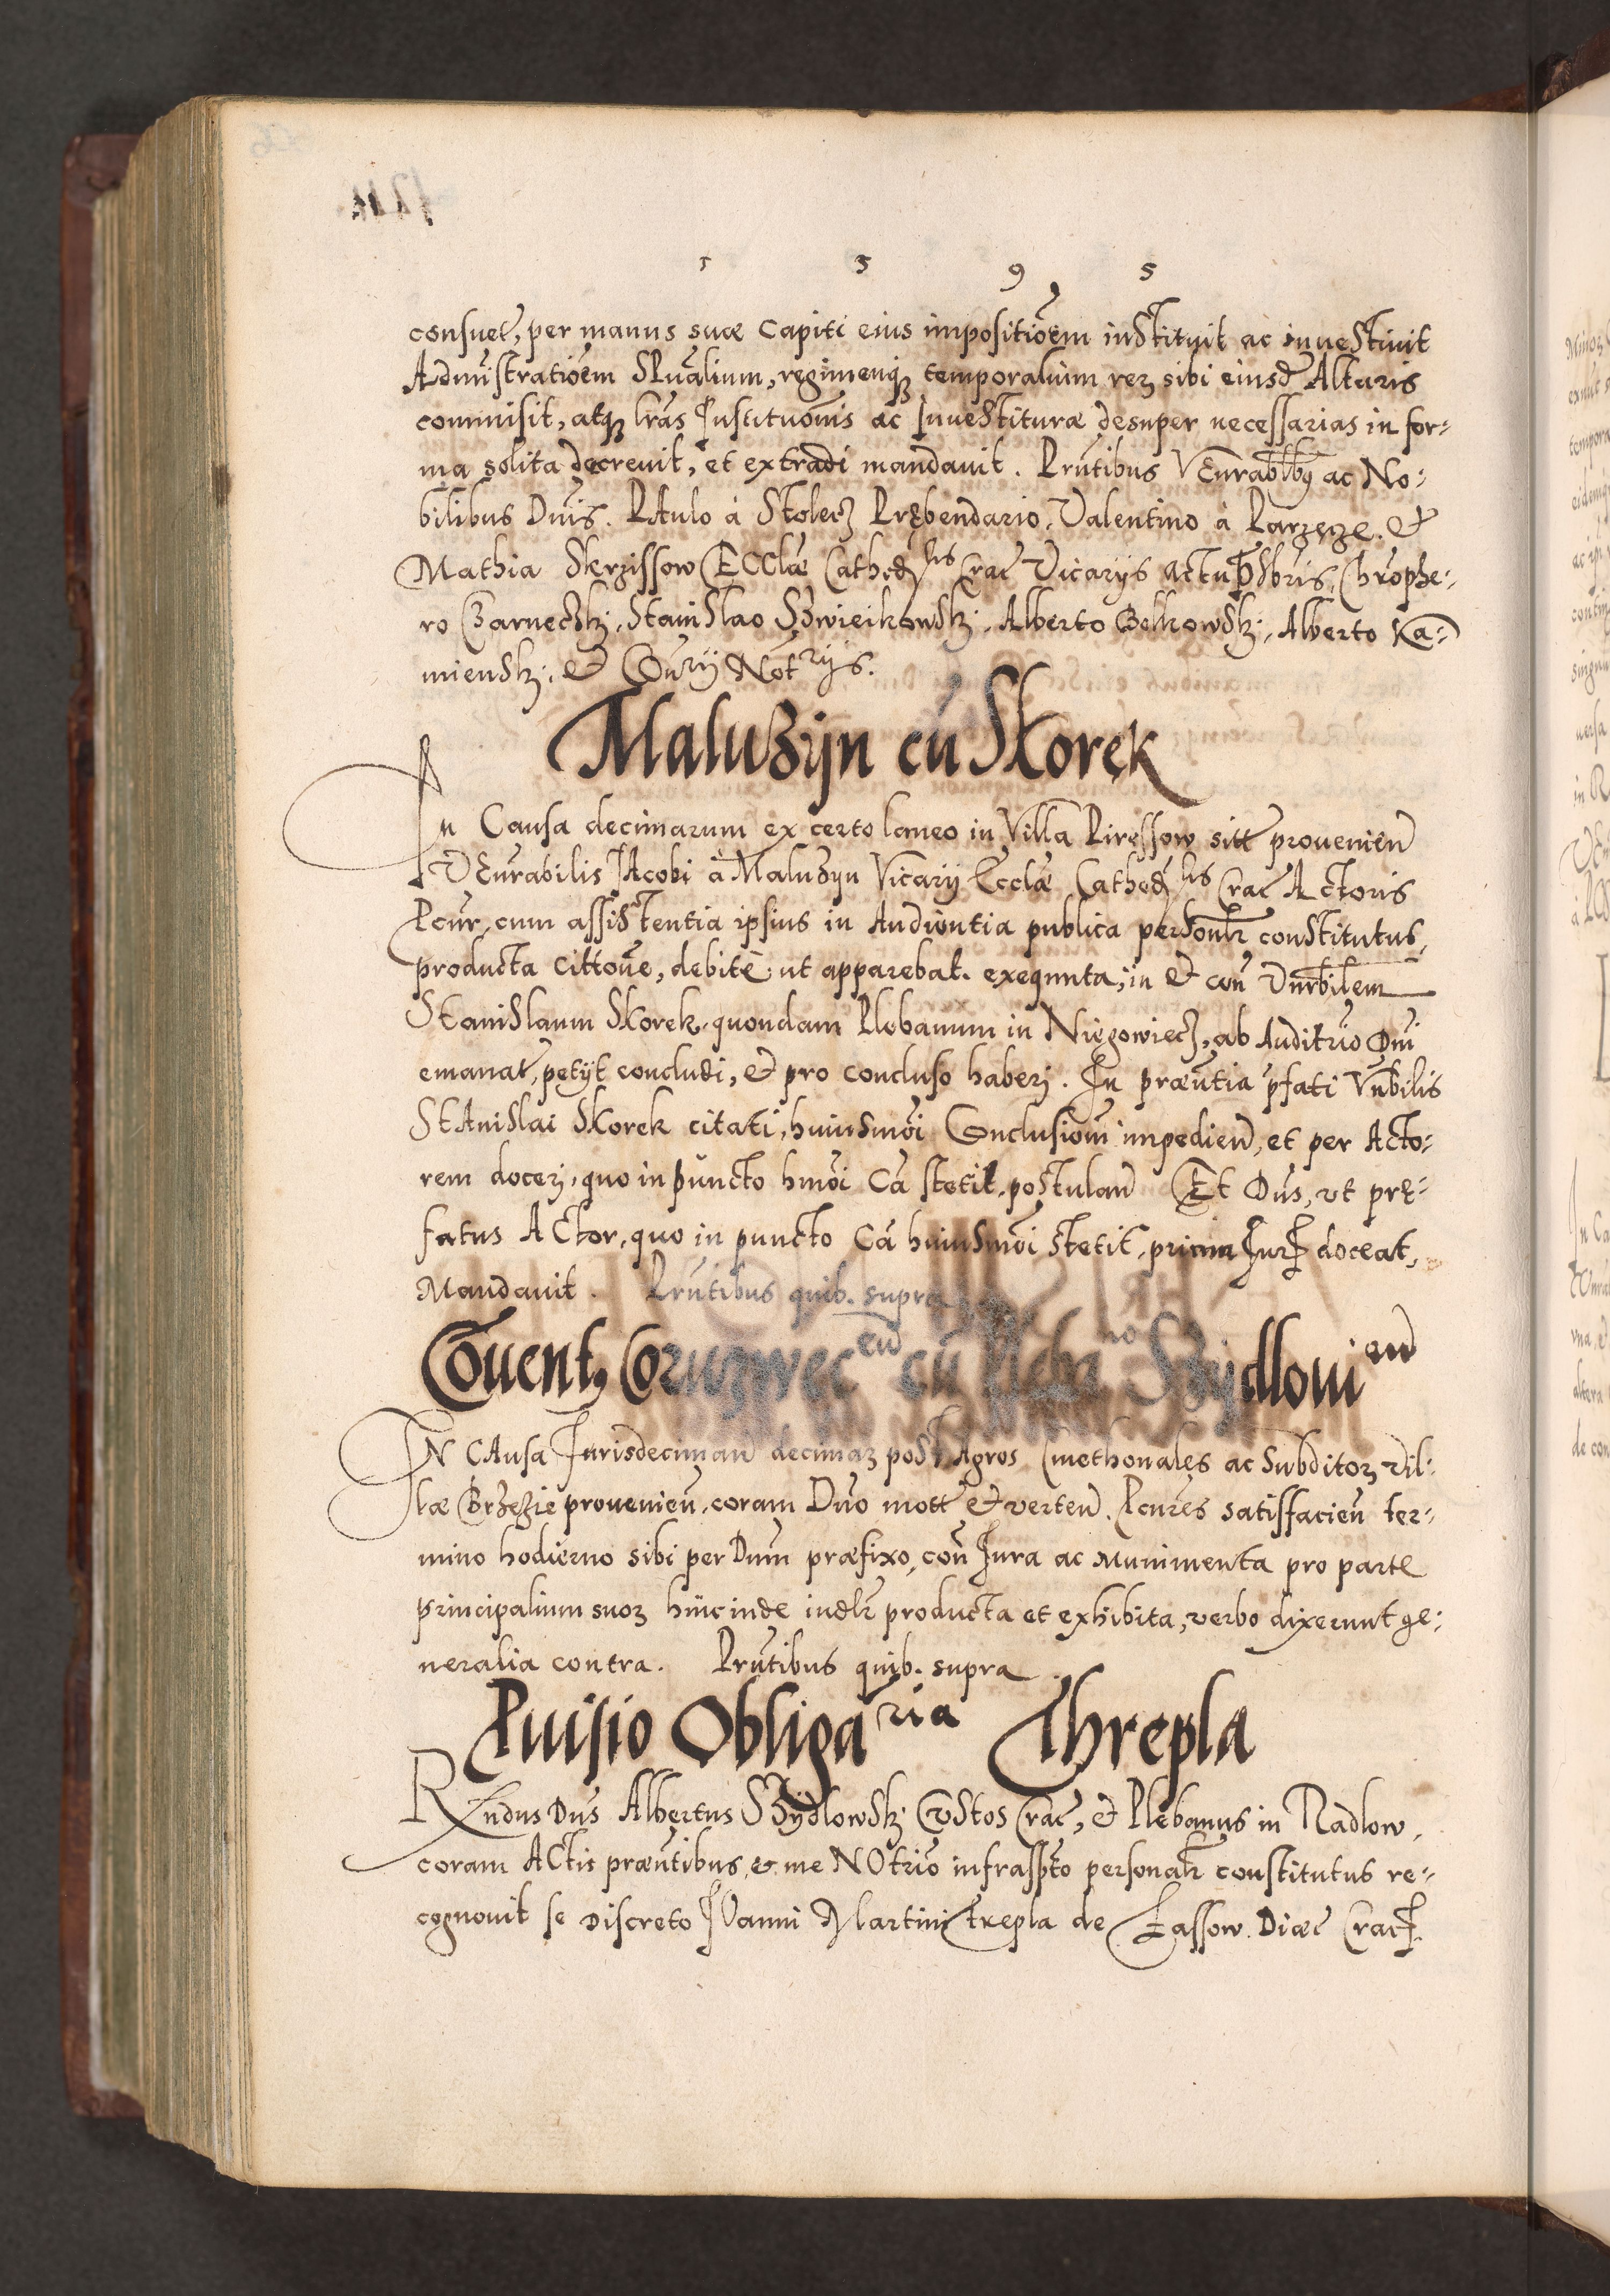 1 5 9 5
consuet, per manus suæ Capiti eius impositiōēm instituit ac inuestiuit
Admistratiōēm Sṗualium, regimenqꝫ temporalium reꝝ sibi eiusd Altaris
commisit, atqꝫ lrās Institutionis ac Inuestituræ desuper necessarias in for-
ma solita decreuit, et extradi mandauit. Pn̄tibus Vēnrablbꝰ ac No-
bilibus Dn̄is. PAulo à Stolecz Prębendario, Valentino à et
Mathia Skrzissow Ecclæ Cathedꝵlis Crac Vicarijs actu pbr̄is, Chrōphe-
ro Czarneczkj, Stanislao Szwieikowskj, Alberto Belkowskj, Alberto Ka-
mienskj, et Cōn̄rij Notrijs.
Maluszijn cū Skorek
In Causa decimarum ex certo laneo in Villa Piręssow sitt prouenien̄
VEn̄rabilis IAcobi à Maluszijn Vicarij Ecclæ Cathedꝵlis Crac Actoris
Pcur, cum assistentia ipsius in Audientia publica personlr constitutus,
producta Cittōne, debitè ut apparebat. exequuta, in et con̄ Vn̄rbilem
Stanislaum Skorek, quondam Plebanum in Niegowiecz, ab Auditrio Dn̄i
emanat, petijt concludi, et pro concluso haberj. In præn̄tia pfati Vn̄rbilis
StAnislai Skorek citati, huiusmōi Conclusiōnī impedien̄, et per Acto-
rem docerj, quo in puncto hmōi Cā stetit, postulan̄ Et Dn̄s, ut præ-
fatus ACtor, quo in puncto Cā huiusmōi stetit, primum Iurꝭ doceat,
Mandauit. Pn̄tibus quib. supra
Cōuentꝰ cū Pleba no Szijdlouien̄
IN CAusa Iurisdeciman̄ decimaꝝ post Agros Cmethonales ac Subditoꝝ Vil-
læ Brzezie prouenien̄, coram Dn̄o mott et verten̄. Pcur̄es satisfacien̄ ter-
mino hodierno sibi per Dn̄m præfixo, con̄ Iura ac Munimenta pro parte
principalium suoꝝ hinc inde iudlr producta et exhibita, verbo dixerunt ge-
neralia contra. Pn̄tibus quib. supra
Puisio Obligaria Threpla
Rn̄dus Dn̄s Albertus Szijdlowskj Custos Crac, et Plebanus in Radlow,
coram ACtis præn̄tibus, et me NOtrio infrasspto personalr constitutus re-
cognouit se Discreto IOanni Martini Trepla de Lassow Diæc Cracꝭ